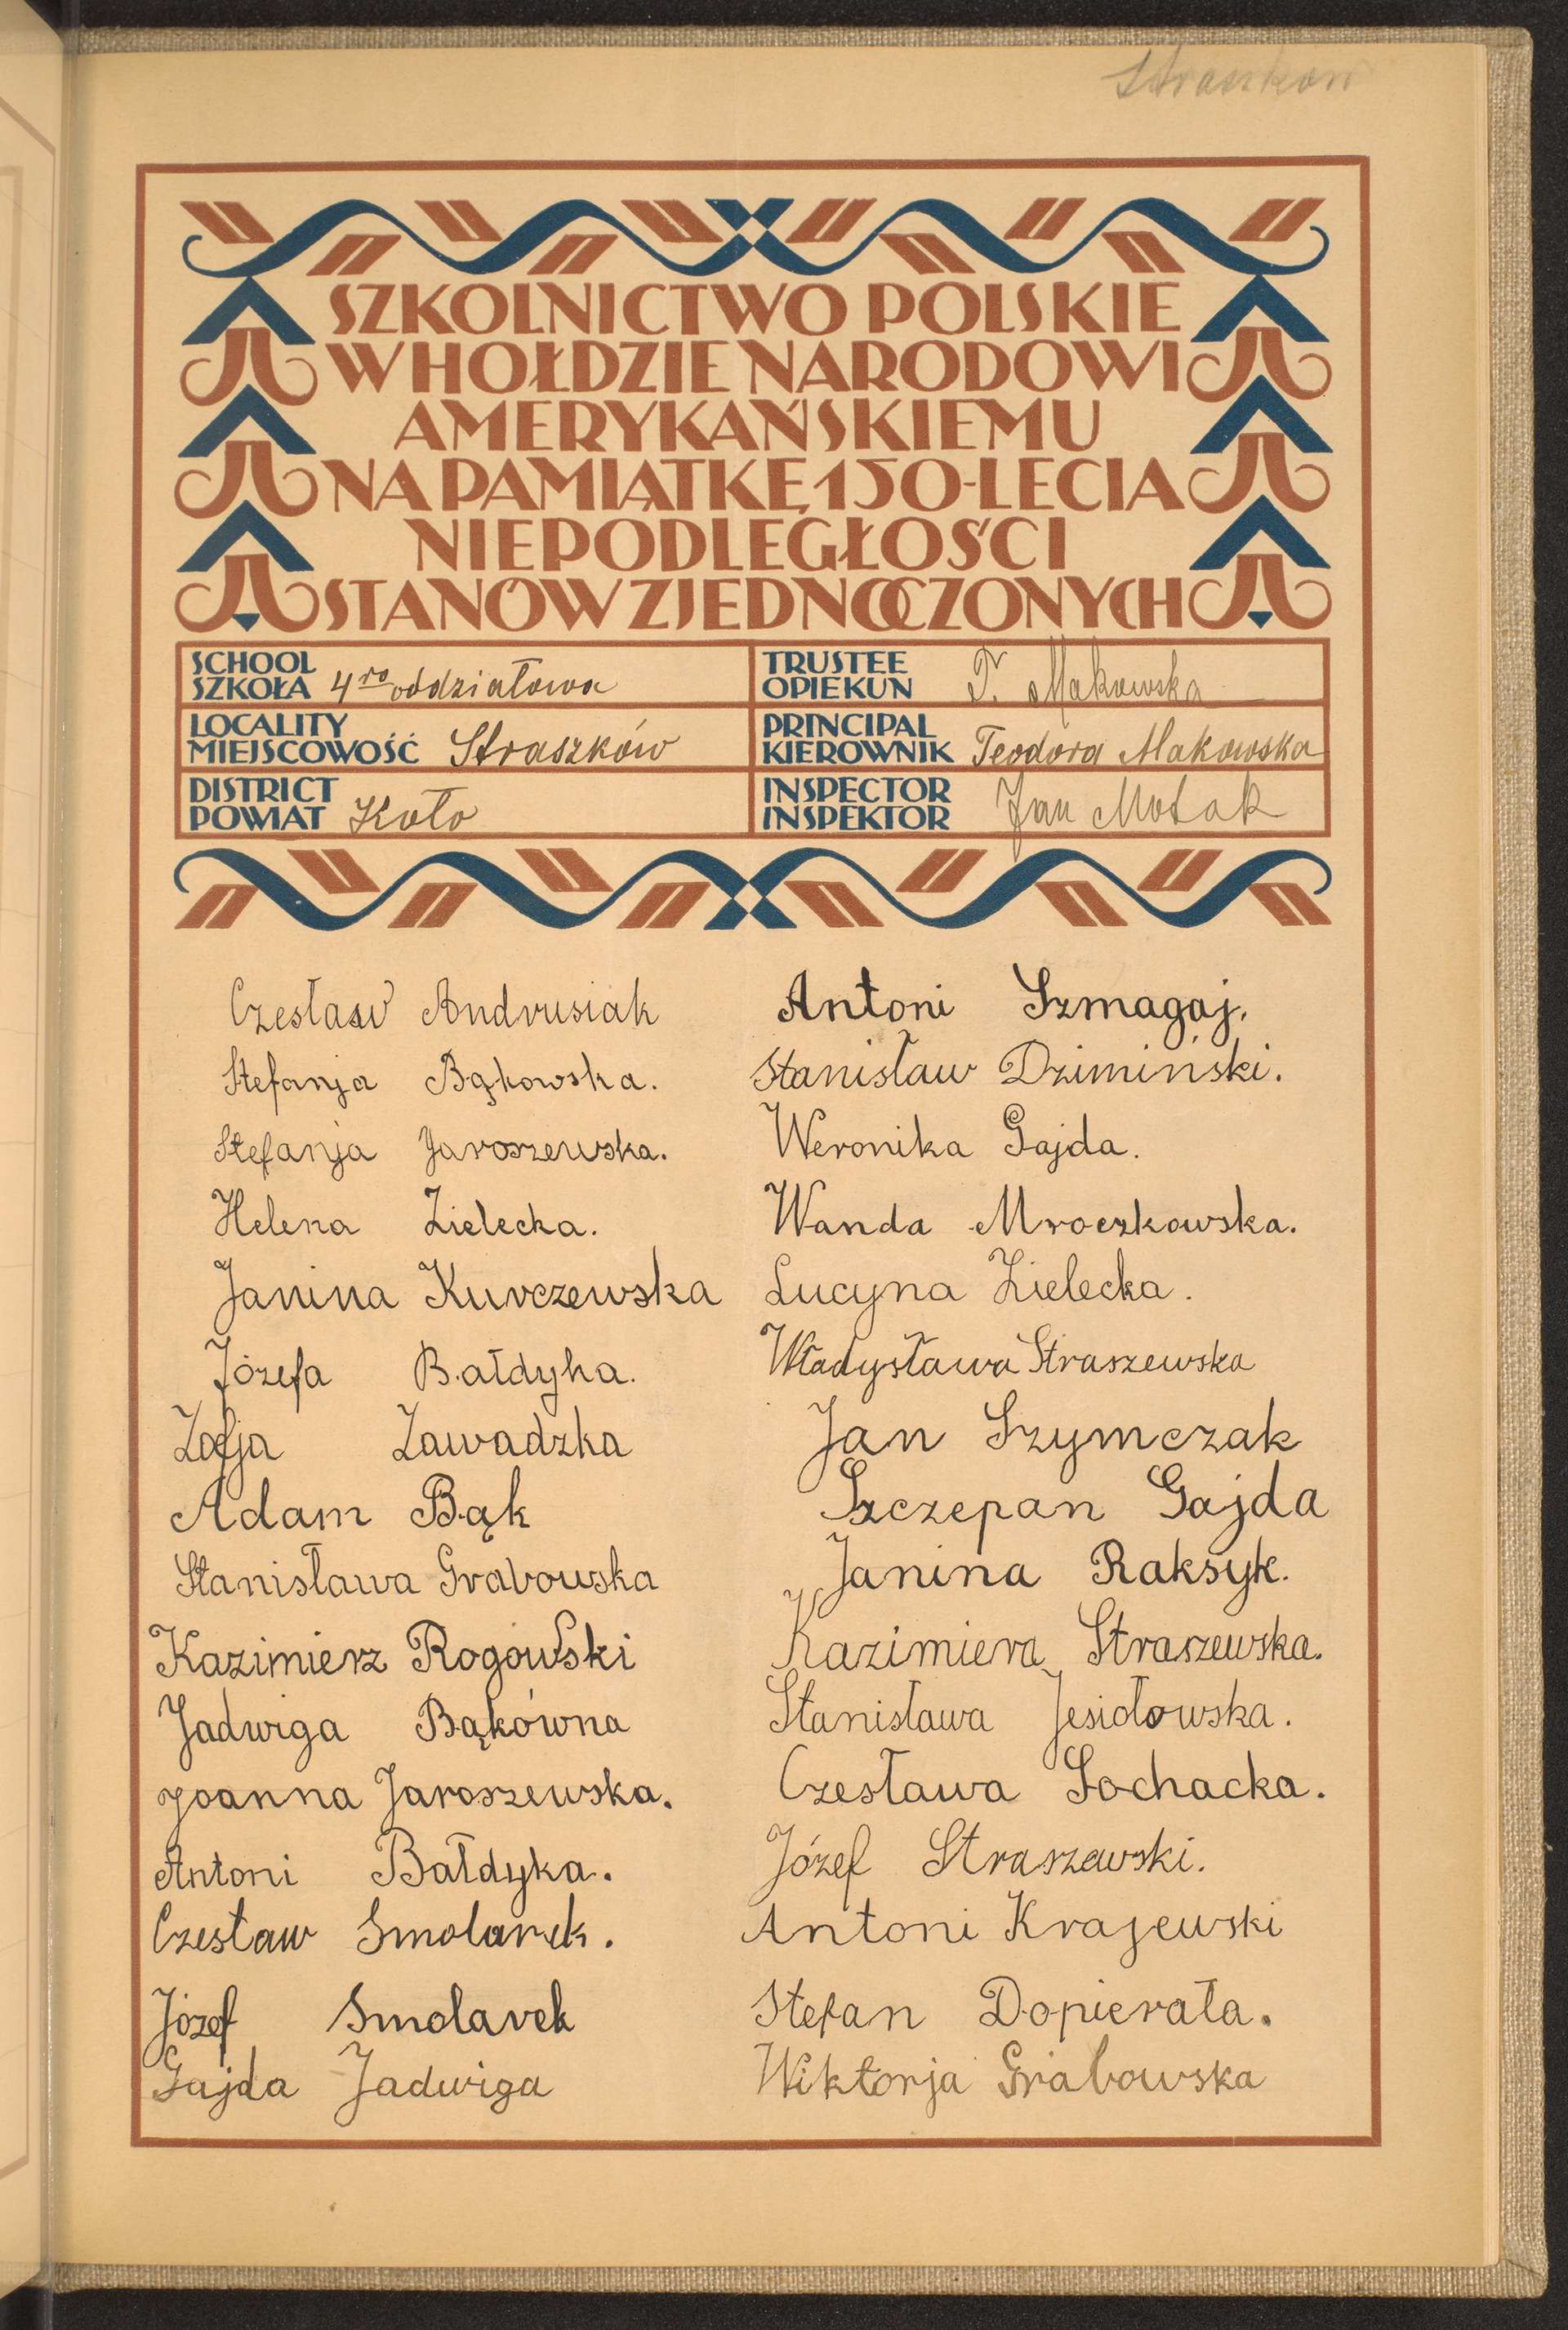 Straszków
SZKOLNICTWO POLSKIE
W HOŁDZIE NARODOWI
AMERYKAŃSKIEMU
NA PAMIĄTKĘ 150-LECIA
NIEPODLEGŁOŚCI
STANÓW ZJEDNOCZONYCH
SCHOOL
SZKOŁA 4ro oddziałowa
TRUSTEE
OPIEKUN T. Makowska
LOCALITY
MIEJSCOWOŚĆ Straszków
PRINCIPAL
KIEROWNIK Teodora Makowska
DISTRICT
POWIAT Koło
INSPECTOR
INSPEKTOR Jan Motak
Czesław Andrusiak
Stefanja Bąkowska.
Stefanja Jaroszewska.
Helena Zielecka.
Janina Kurczewska
Józefa Bałdyka.
Zofja Zawadzka
Adam Bąk
Stanisława Grabowska
Kazimierz Rogowski
Jadwiga Bąkówna
Joanna Jaroszewska.
Antoni Bałdyka.
Czesław Smolarek.
Józef Smolarek
Gajda Jadwiga
Antoni Szmagaj.
Stanisław Dzimiński.
Weronika Gajda.
Wanda Mroczkowska.
Lucyna Zielecka.
Władysława Straszewska
Jan Szymczak
Szczepan Gajda
Janina Raksyk.
Kazimiera Straszewska.
Stanisława Jesiołowska.
Czesława Sochacka.
Józef Straszewski.
Antoni Krajewski
Stefan Dopierała.
Wiktorja Grabowska